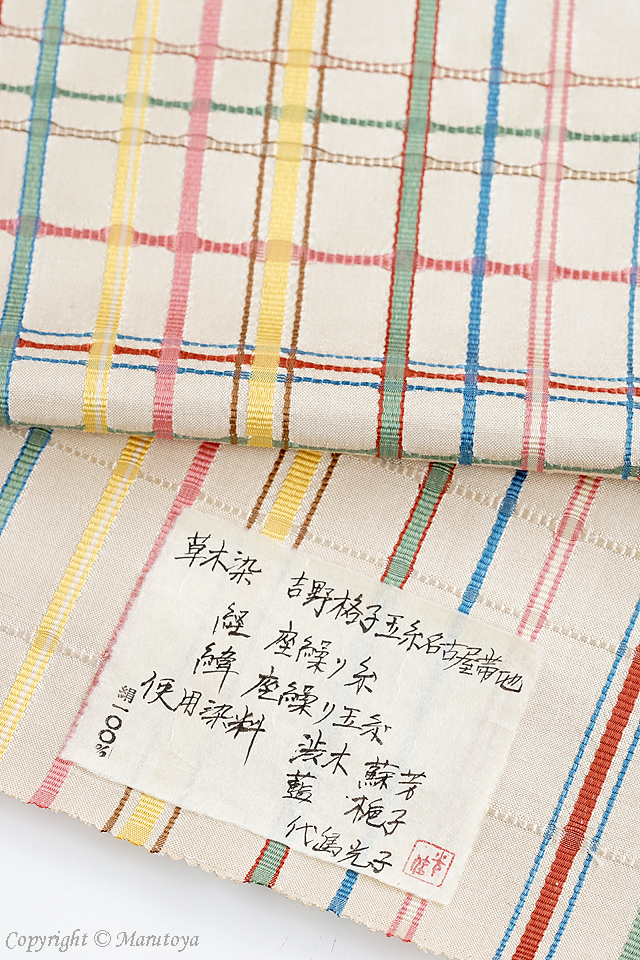 草木染 吉野格子玉糸名古屋帯地
経 座繰り糸
緯 座繰り玉糸
使用染料
渋木 蘇芳
藍 梔子
代島光子
絹一〇〇%
Copyright © Marutoya